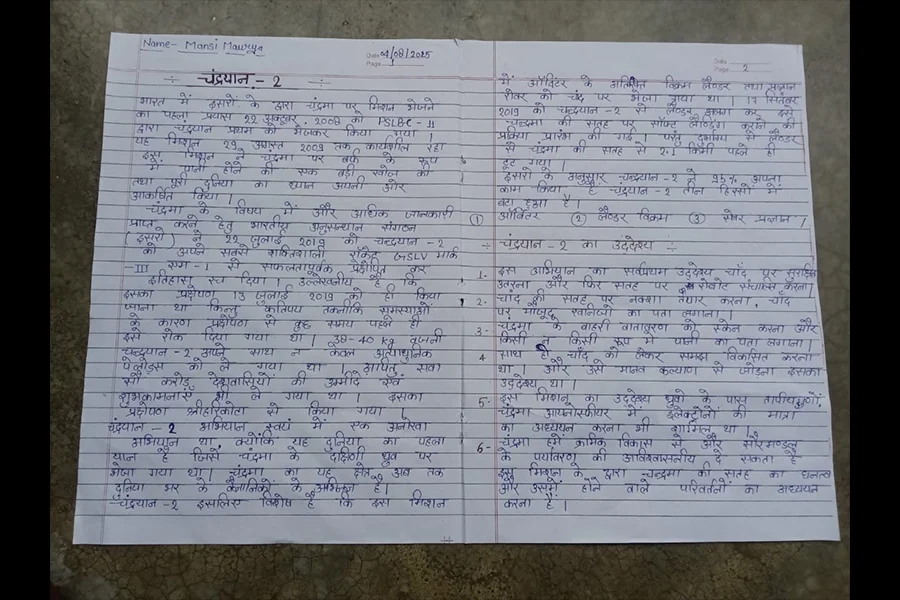 Name- Mansi Maurya
Date 04/08/2025
Page 1
÷ चंद्रयान - 2 ÷
भारत में इसरो के द्वारा चंद्रमा पर मिशन भेजने
का पहला प्रयास 22 अक्टूबर, 2008 को PSLBC - 11
द्वारा चंद्रयान प्रथम को भेजकर किया गया।
यह मिशन 29 अगस्त 2009 तक कार्यशील रहा
इस मिशन ने चंद्रमा पर बर्फ के रूप
में पानी होने की एक बड़ी खोज की
तथा पूरी दुनिया का ध्यान अपनी ओर
आकर्षित किया।
चंद्रमा के विषय में और अधिक जानकारी
प्राप्त करने हेतु भारतीय अनुसन्धान संगठन
(इसरो) ने 22 जुलाई 2019 को चन्द्रयान -2
को अपने सबसे शक्तिशाली रॉकेट GSLV मार्क
-III एम -1 से सफलतापूर्वक प्रक्षेपित कर
इतिहास रच दिया। उल्लेखनीय है कि
इसका प्रक्षेपण 13 जुलाई 2019 को ही किया
जाना था किन्तु कतिपय तकनीकि समस्याओं
के कारण प्रक्षेपण से कुछ समय पहले ही
इसे रोक दिया गया था। 38-40 kg वजनी
चन्द्रयान -2 अपने साथ न केवल अत्याधुनिक
पेलोड्स को ले गया था अपितु सवा
सौ करोड़ देशवासियों की उम्मीदें एवं
शुभकामनाएँ भी ले गया था। इसका
प्रक्षेपण श्रीहरिकोता से किया गया।
चंद्रयान - 2 अभियान स्वयं में एक अनोखा
अभियान था, क्योंकि यह दुनिया का पहला
यान है जिसे चंद्रमा के दक्षिणी ध्रुव पर
भेजा गया था। चंद्रमा का यह क्षेत्र अब तक
दुनिया भर के वैज्ञानिकों के है।
चंद्रयान -2 इसलिए विशेष है कि इस मिशन
Date
Page 2
में ऑर्बिटर के अतिरिक्त विक्रम लैण्डर तथा प्रज्ञान
रोवर को चंद्र पर भेजा गया था। 17 सितंबर
2019 को चन्द्रयान -2 से लैण्डर कर इसे
चन्द्रमा की सतह पर सॉफ्ट लैंडिंग कराने की
प्रक्रिया प्रारंभ की गई। परंतु दुर्भाग्य से लैण्डर
से चंद्रमा की सतह से 2.1 किमी पहले ही
टूट गया।
इसरो के अनुसार चन्द्रयान -2 ने 95% अपना
काम किया है चन्द्रयान -2 तीन हिस्सों में
बटा हुआ है।
① ऑर्बिटर ② लैण्डर विक्रम ③ रोवर प्रज्ञान।
÷ चंद्रयान -2 का उद्देश्य ÷
1- इस अभियान का सर्वप्रथम उद्देश्य चाँद पर सुरक्षित
उतरना और फिर सतह पर रोबोट संचालन करना।
2- चाँद की सतह पर नक्शा तैयार करना, चाँद
पर मौजूद खनिजों का पता लगाना।
3- चंद्रमा के बाहरी वातावरण को स्कैन करना और
किसी न किसी रूप में पानी का पता लगाना।
4 साथ ही चाँद को लेकर समझ विकसित करना
था। और उसे मानव कल्याण से जोड़ना इसका
उद्देश्य था।
5- इस मिशन का उद्देश्य ध्रुवों के पास
चंद्रमा आयनोस्फीयर में इलेक्ट्रोनों की मात्रा
का अध्ययन करना भी शामिल था।
6- चंद्रमा हमें क्रमिक विकास से और सौरमण्डल
के पर्यावरण की दे सकता है
इस मिशन के द्वारा चन्द्रमा की सतह का घनत्व
और उसमें होने वाले परिवर्तनों का अध्ययन
करना है।